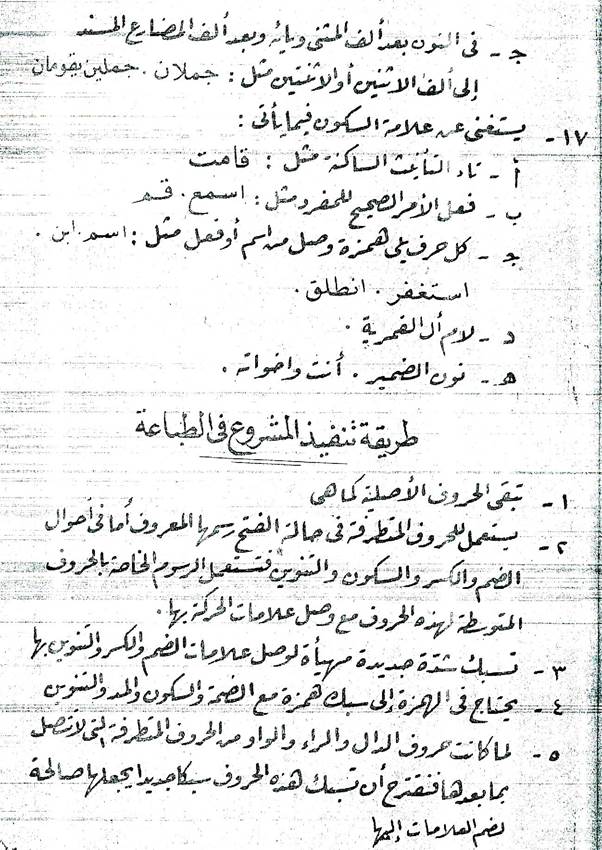 جـ - فى النون بعد ألف المثنى ويائه وبعد ألف المضارع المسند
إلى ألف الاثنين أو الاثنتين مثل : جملان . جملين يقومان
١٧ - يستغنى عن علامة السكون فيما يأتى :
أ - تاء التأنيث الساكنة مثل : قامت
ب - فعل الأمر الصحيح للمفرد مثل : اسمع . قم
جـ - كل حرف يلى همزة وصل من اسم أو فعل مثل : اسم . ابن .
استغفر . انطلق .
د - لام أل القمرية .
هـ - نون الضمير . أنت واخواته .
طريقة تنفيذ المشروع فى الطباعة
١ - تبقى الحروف الأصلية كما هى
٢ - يستعمل للحروف المتطرفة فى حالة الفتح رسمها المعروف أما فى أحوال
الضم والكسر والسكون والتنوين فتستعمل الرسوم الخاصة بالحروف
المتوسطة لهذه الحروف مع وصل علامات الحركة بها .
٣ - تسبك شدّة جديدة مهيأة لوصل علامات الضم والكسر والتنوين بها
٤ - يحتاج فى الهمزة إلى سبك همزة مع الضمة والسكون والمد والتنوين
٥ - لما كانت حروف الدال والراء والواو من الحروف المتطرفة التى لا تتصل
بما بعدها فنقترح أن تسبك هذه الحروف سبكا جديدا يجعلها صالحة
لضم العلامات إليها